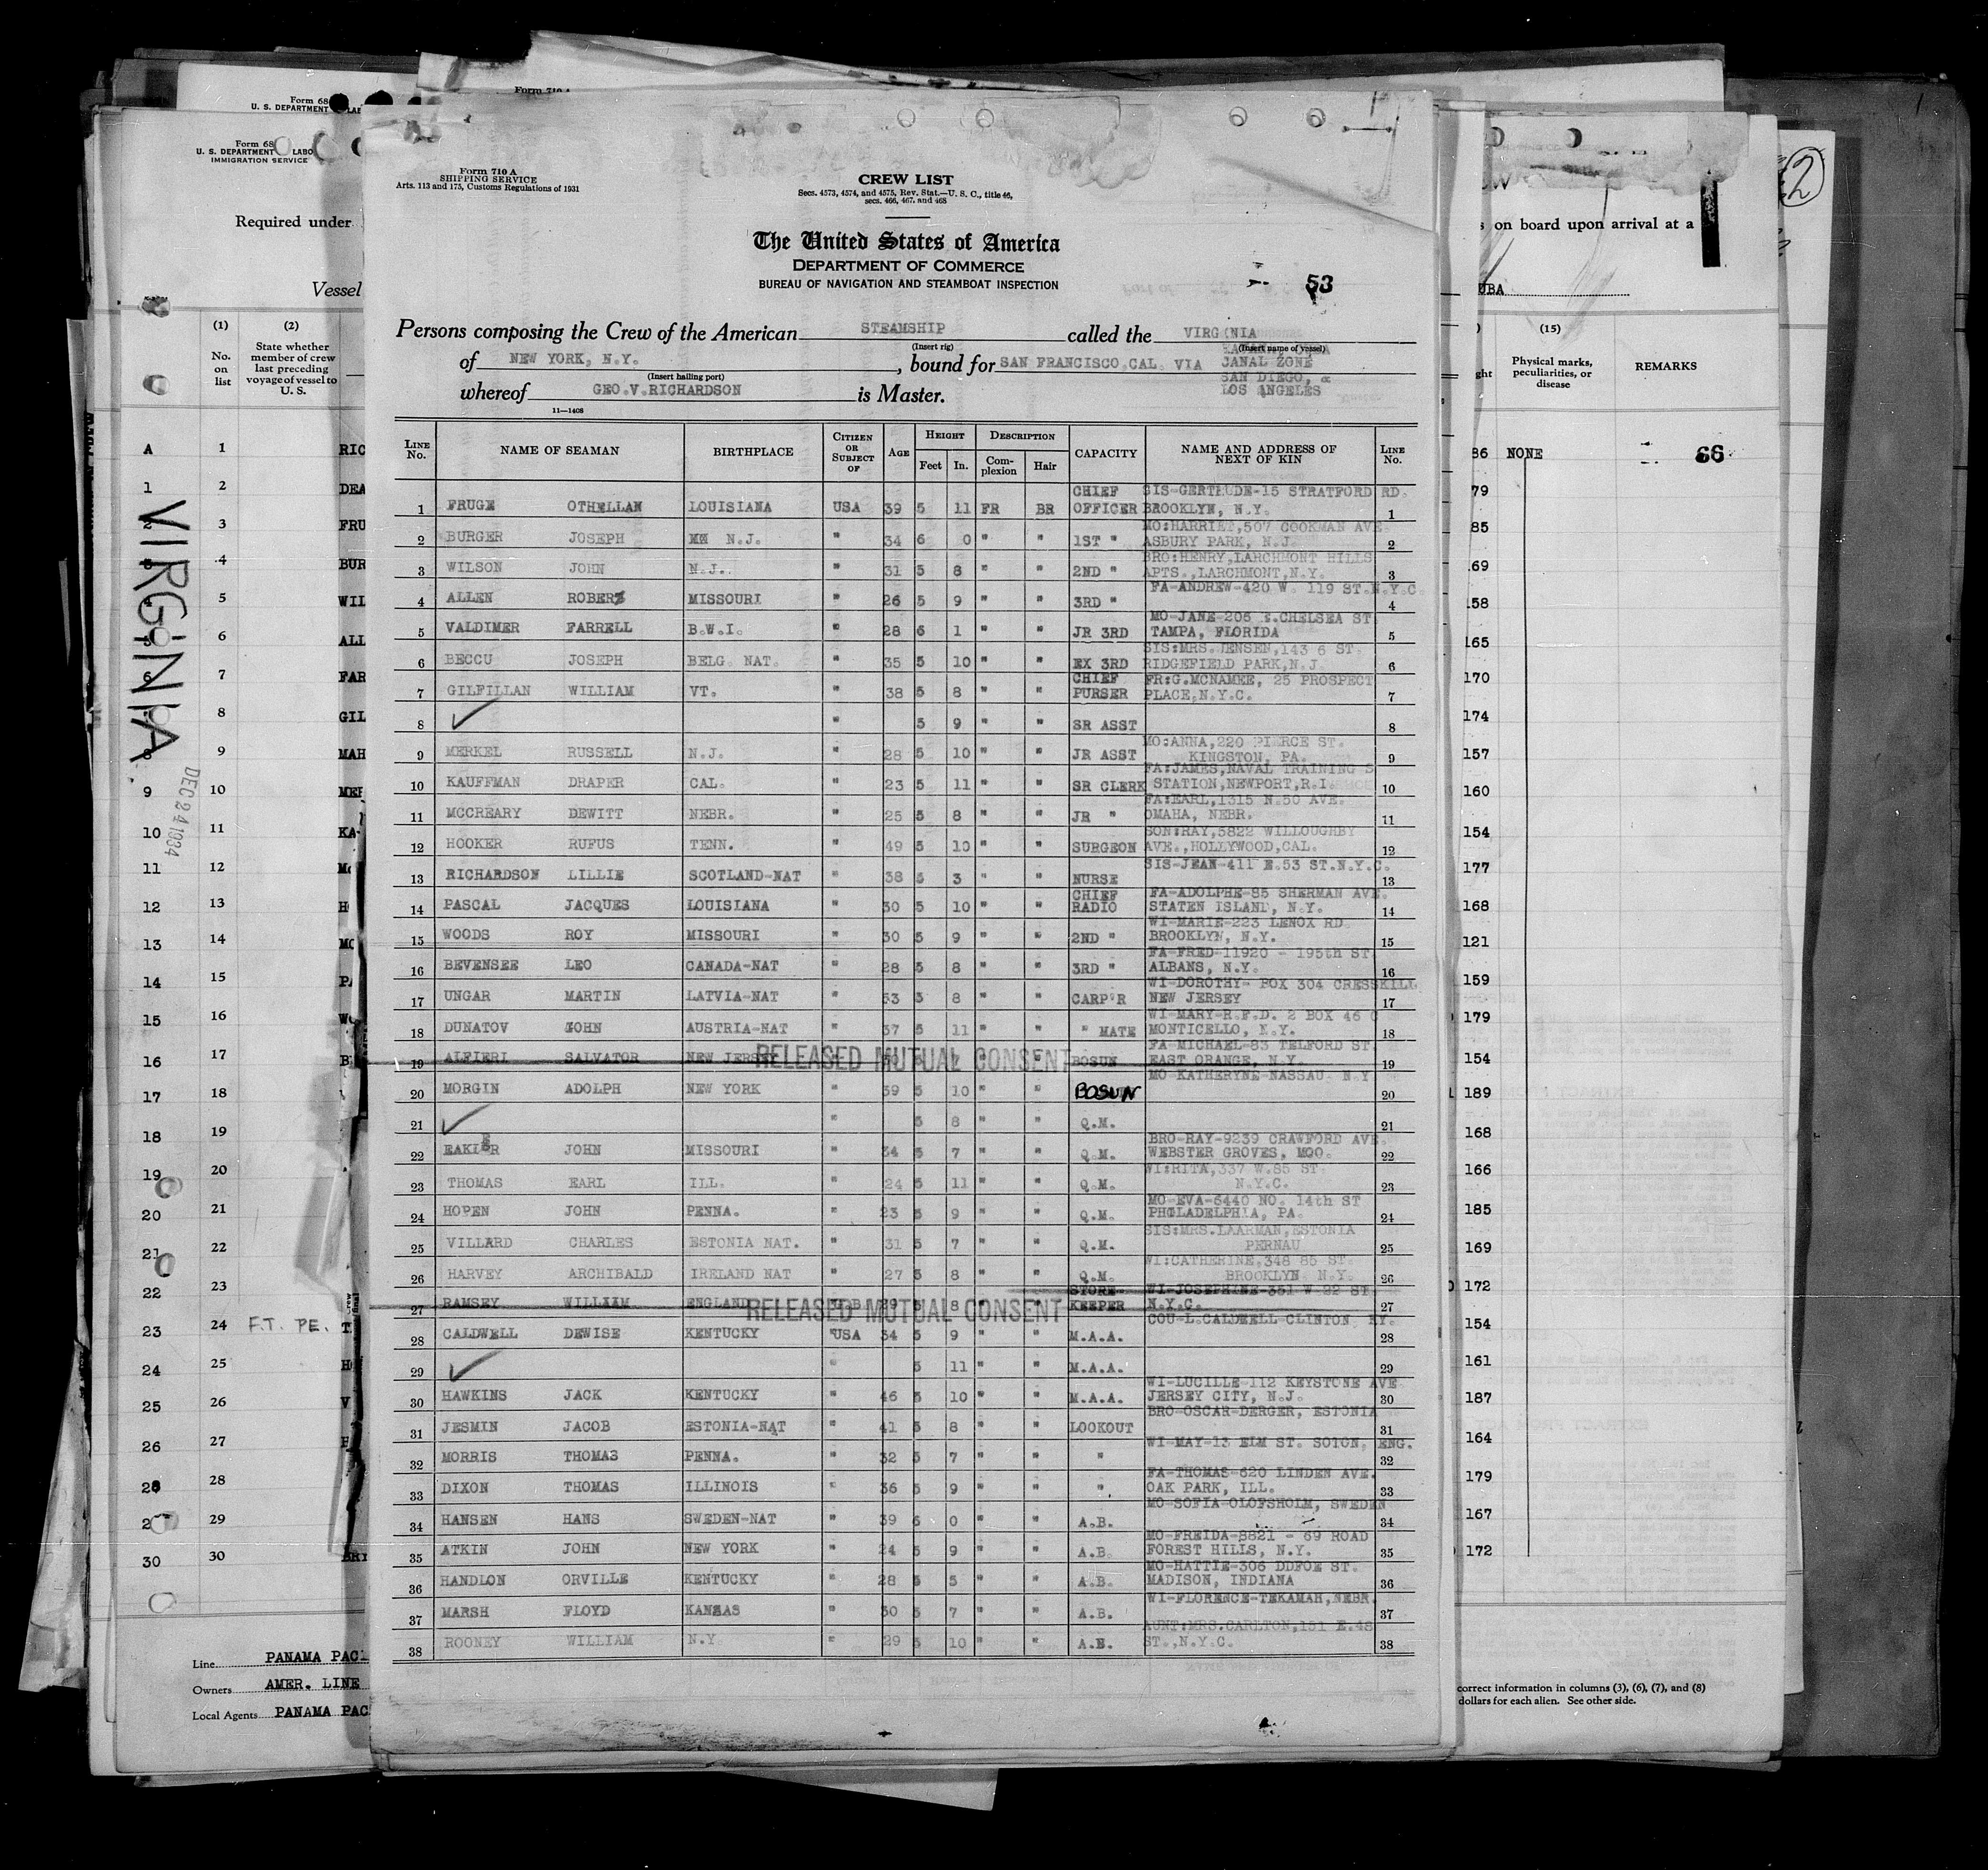 Form 710 A
SHIPPING SERVICE
Arts. 113 and 175, Customs Regulations of 1931
CREW LIST
Secs. 4573, 4574, and 4575, Rev. Stat.—U. S. C., title 46,
secs. 466, 467, and 468
The United States of America
DEPARTMENT OF COMMERCE
BUREAU OF NAVIGATION AND STEAMBOAT INSPECTION
53
Persons composing the Crew of the American STEAMSHIP called the VIRGINIA
(Insert rig) (Insert name of vessel)
of NEW YORK, N.Y. , bound for SAN FRANCISCO,CAL. VIA CANAL ZONE
(Insert hailing port) SAN DIEGO, &
whereof GEO.V.RICHARDSON is Master. LOS ANGELES
11—1408
LINE No. NAME OF SEAMAN BIRTHPLACE CITIZEN OR SUBJECT OF AGE HEIGHT Feet In. DESCRIPTION Complexion Hair CAPACITY NAME AND ADDRESS OF NEXT OF KIN LINE No.
1 FRUGE OTHELLAN LOUISIANA USA 39 5 11 FR BR CHIEF OFFICER SIS-GERTRUDE-15 STRATFORD RD. BROOKLYN, N.Y. 1
2 BURGER JOSEPH N.J. " 34 6 0 " " 1ST " MO:HARRIET,507 COOKMAN AVE ASBURY PARK, N.J. 2
3 WILSON JOHN N.J. " 31 5 8 " " 2ND " BRO:HENRY,LARCHMONT HILLS APTS.,LARCHMONT,N.Y. 3
4 ALLEN ROBERT MISSOURI " 26 5 9 " " 3RD " FA-ANDREW-420 W. 119 ST.N.Y.C. 4
5 VALDIMER FARRELL B.W.I. " 28 6 1 " " JR 3RD MO-JANE-206 E.CHELSEA ST TAMPA, FLORIDA 5
6 BECCU JOSEPH BELG. NAT. " 35 5 10 " " EX 3RD SIS:MRS.JENSEN,143 6 ST. RIDGEFIELD PARK,N.J. 6
7 GILFILLAN WILLIAM VT. " 38 5 8 " " CHIEF PURSER FR:G.MCNAMEE, 25 PROSPECT PLACE,N.Y.C. 7
8 " 5 9 " " SR ASST 8
9 MERKEL RUSSELL N.J. " 28 5 10 " " JR ASST MO:ANNA,220 PIERCE ST. KINGSTON, PA. 9
10 KAUFFMAN DRAPER CAL. " 23 5 11 " " SR CLERK FA:JAMES,NAVAL TRAINING S STATION,NEWPORT,R.I. 10
11 MCCREARY DEWITT NEBR. " 25 5 8 " " JR " FA:EARL,1315 N.50 AVE. OMAHA, NEBR. 11
12 HOOKER RUFUS TENN. " 49 5 10 " " SURGEON SON:RAY,5822 WILLOUGHBY AVE.,HOLLYWOOD,CAL. 12
13 RICHARDSON LILLIE SCOTLAND-NAT " 38 5 3 " " NURSE SIS-JEAN-411 E.53 ST.N.Y.C. 13
14 PASCAL JACQUES LOUISIANA " 30 5 10 " " CHIEF RADIO FA-ADOLPHE-85 SHERMAN AVE. STATEN ISLAND, N.Y. 14
15 WOODS ROY MISSOURI " 30 5 9 " " 2ND " WI-MARIE-223 LENOX RD BROOKLYN, N.Y. 15
16 BEVENSEE LEO CANADA-NAT " 28 5 8 " " 3RD " FA-FRED-11920 - 195th ST ALBANS, N.Y. 16
17 UNGAR MARTIN LATVIA-NAT " 53 5 8 " " CARP'R WI-DOROTHY- BOX 304 CRESSKILL NEW JERSEY 17
18 DUNATOV JOHN AUSTRIA-NAT " 37 5 11 " " " MATE WI-MARY-R.F.D. 2 BOX 46 C MONTICELLO, N.Y. 18
19 ALFIERI SALVATOR NEW JERSEY RELEASED MUTUAL CONSENT BOSUN FA-MICHAEL-83 TELFORD ST. EAST ORANGE, N.Y. 19
20 MORGIN ADOLPH NEW YORK " 39 5 10 " " BOSUN MO-KATHERYNE-NASSAU- N.Y 20
21 " 5 8 " " Q.M. 21
22 EAKER JOHN MISSOURI " 34 5 7 " " Q.M. BRO-RAY-9239 CRAWFORD AVE. WEBSTER GROVES, MOO. 22
23 THOMAS EARL ILL. " 24 5 11 " " Q.M. WI:RITA,337 W.85 ST. N.Y.C. 23
24 HOPEN JOHN PENNA. " 23 5 9 " " Q.M. MO-EVA-6440 NO. 14th ST PHILADELPHIA, PA. 24
25 VILLARD CHARLES ESTONIA NAT. " 31 5 7 " " Q.M. SIS:MRS.LAARMAN,ESTONIA PERNAU 25
26 HARVEY ARCHIBALD IRELAND NAT " 27 5 8 " " Q.M. WI:CATHERINE,348 85 ST. BROOKLYN N.Y. 26
27 RAMSEY WILLIAM ENGLAND RELEASED MUTUAL CONSENT STORE-KEEPER WI-JOSEPHINE-351 W 22 ST N.Y.C. 27
28 CALDWELL DEWISE KENTUCKY USA 34 5 9 " " M.A.A. COU-L.CALDWELL-CLINTON, KY. 28
29 " 5 11 " " M.A.A. 29
30 HAWKINS JACK KENTUCKY " 46 5 10 " " M.A.A. WI-LUCILLE-112 KEYSTONE AVE JERSEY CITY, N.J. 30
31 JESMIN JACOB ESTONIA-NAT " 41 5 8 " " LOOKOUT BRO-OSCAR-DERGER, ESTONIA 31
32 MORRIS THOMAS PENNA. " 32 5 7 " " " WI-MAY-13 ELM ST. SOTON, ENG. 32
33 DIXON THOMAS ILLINOIS " 36 5 9 " " " FA-THOMAS-620 LINDEN AVE. OAK PARK, ILL. 33
34 HANSEN HANS SWEDEN-NAT " 39 6 0 " " A.B. MO-SOFIA-OLOFSHOLM, SWEDEN 34
35 ATKIN JOHN NEW YORK " 24 5 9 " " A.B. MO-FREIDA-8821 - 69 ROAD FOREST HILLS, N.Y. 35
36 HANDLON ORVILLE KENTUCKY " 28 5 5 " " A.B. MO-HATTIE-306 DDFOE ST. MADISON, INDIANA 36
37 MARSH FLOYD KANSAS " 30 5 7 " " A.B. WI-FLORENCE-TEKAMAH,NEBR. 37
38 ROONEY WILLIAM N.Y. " 29 5 10 " " A.B. AUNT:MRS.CARLTON,151 E.48 ST.,N.Y.C. 38
Form 68
U. S. DEPARTMENT LABO
IMMIGRATION SERVICE
Required under
Vessel
(1) (2)
No. on list
State whether member of crew last preceding voyage of vessel to U. S.
VIRGINIA
DEC 24 1934
F.T. PE.
Line PANAMA PAC
Owners AMER. LINE
Local Agents PANAMA PAC
2
s on board upon arrival at a
UBA
(15)
Physical marks, peculiarities, or disease
REMARKS
NONE
66
correct information in columns (3), (6), (7), and (8)
dollars for each alien. See other side.